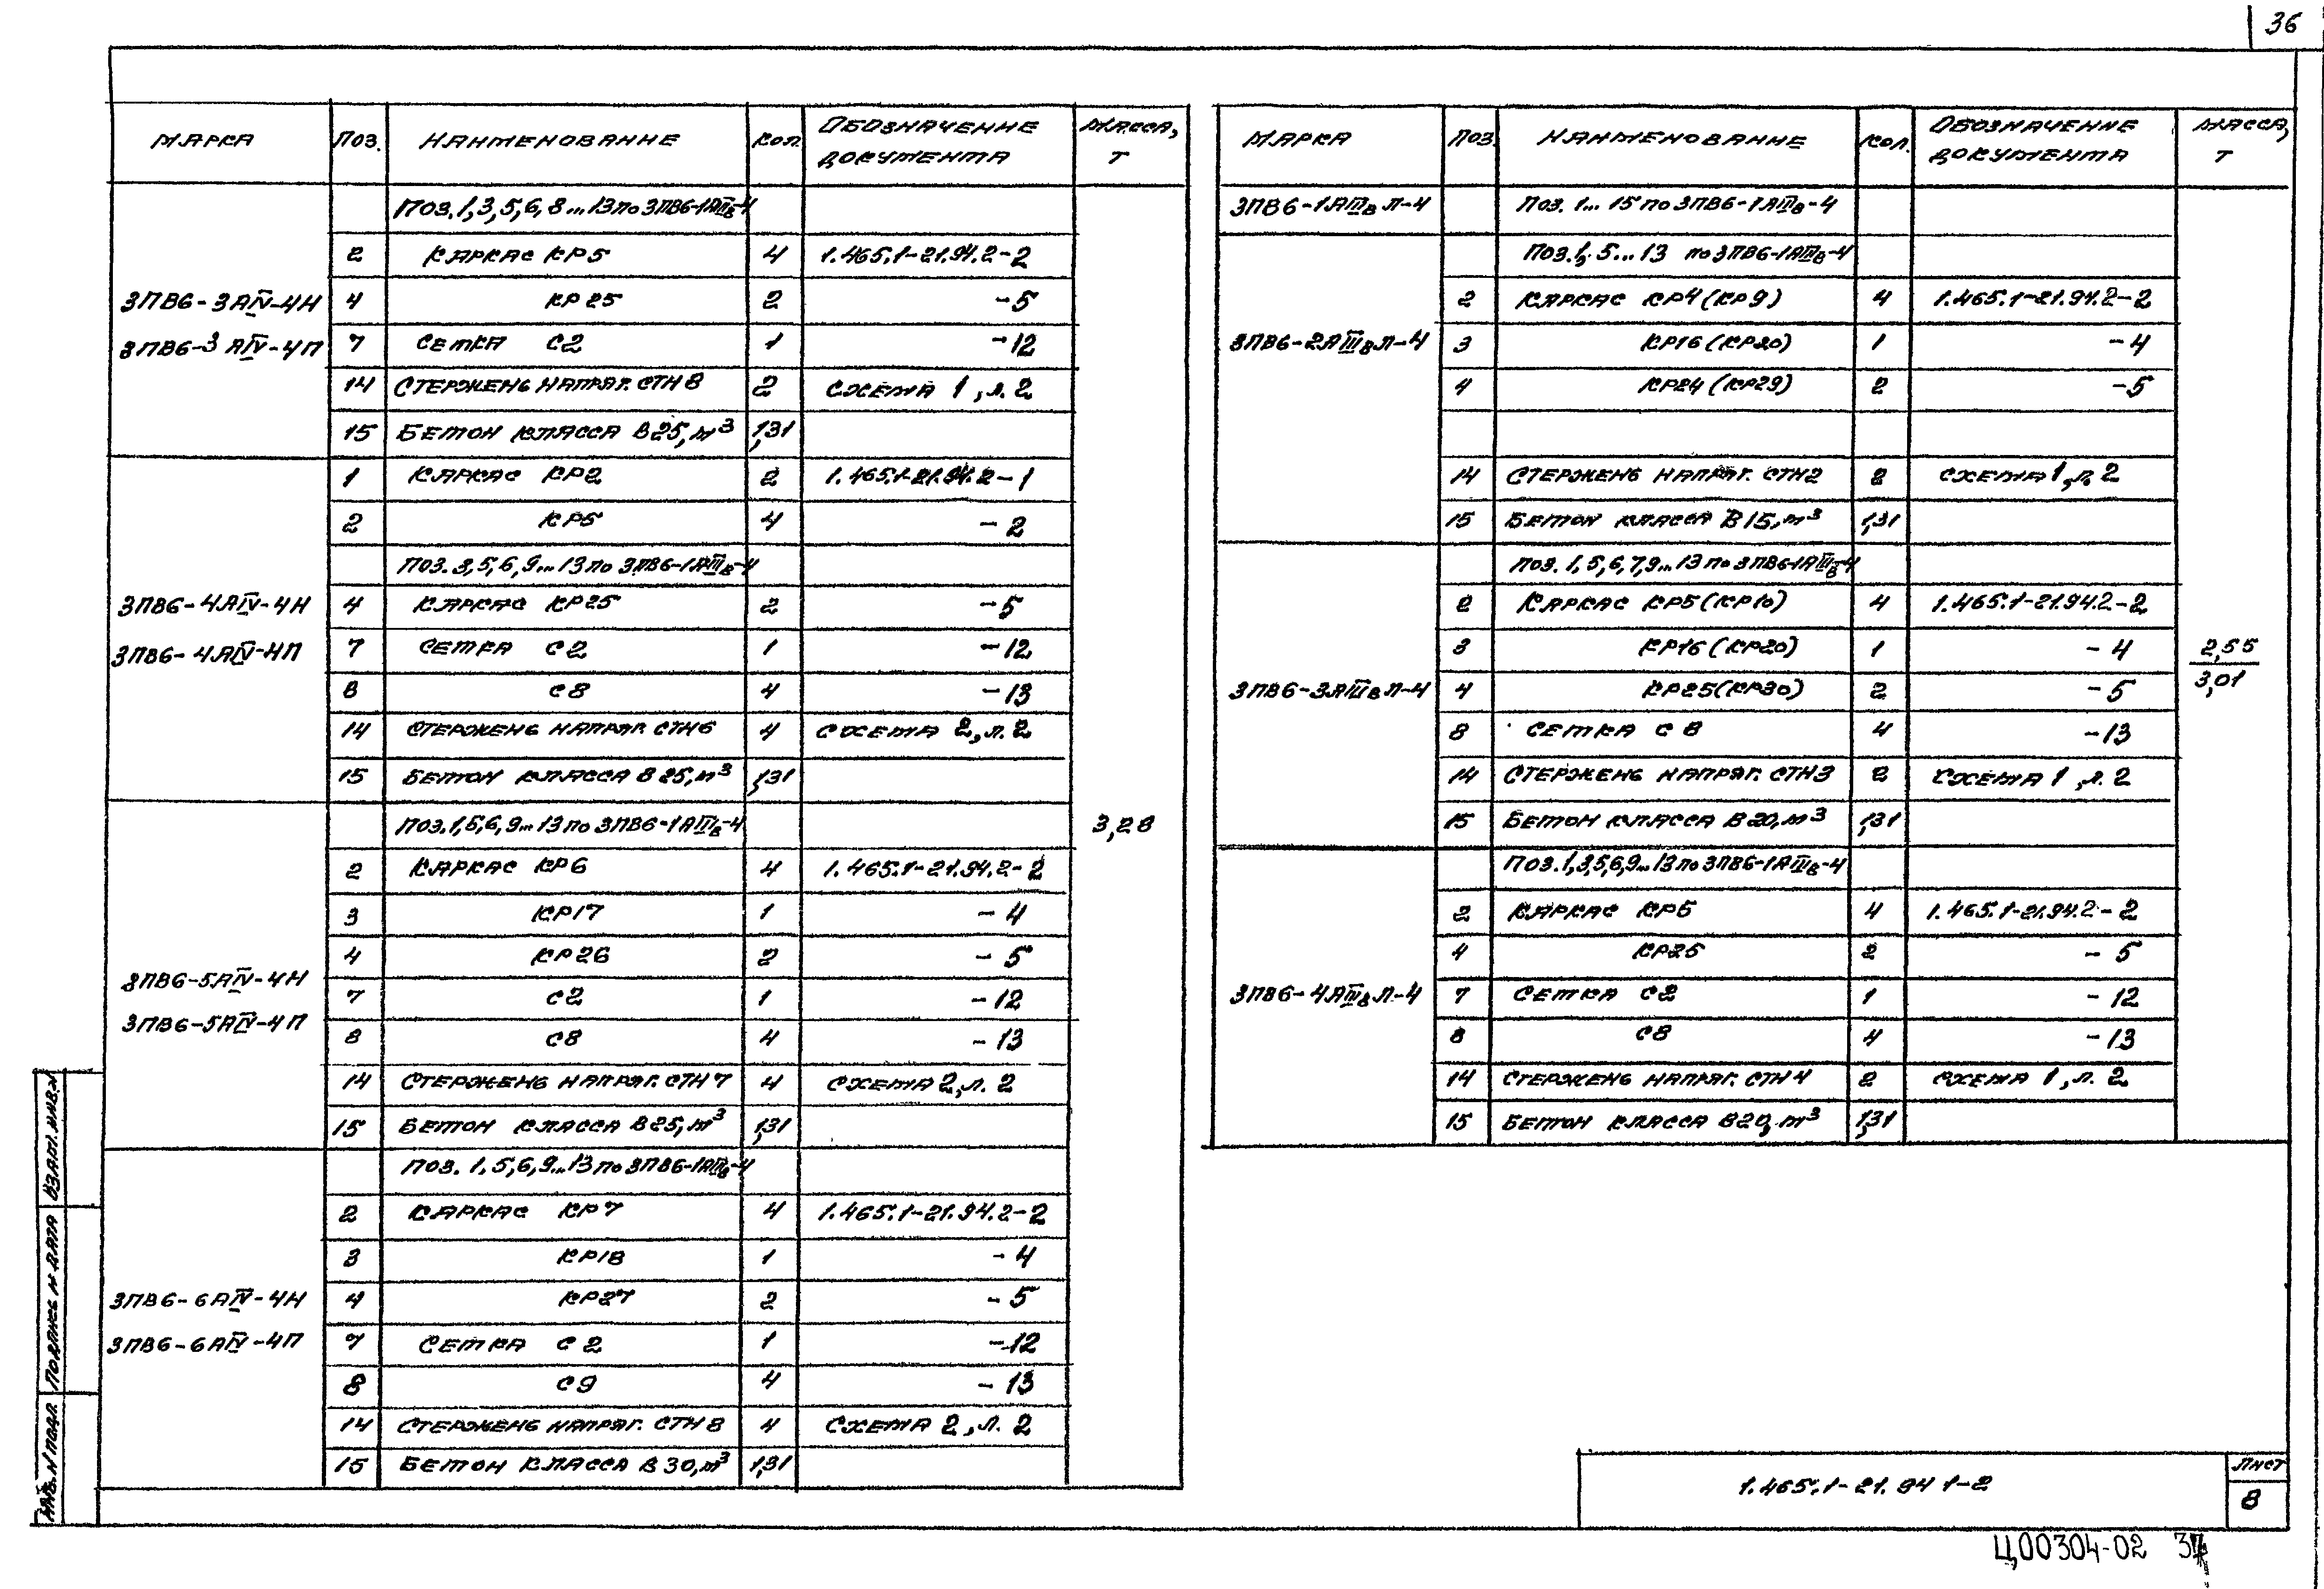 36
МАРКА ПОЗ. НАИМЕНОВАНИЕ КОЛ. ОБОЗНАЧЕНИЕ ДОКУМЕНТА МАССА, Т
ПОЗ. 1, 3, 5, 6, 8...13 ПО 3ПВ6-1АIIIв-4
3ПВ6-3АIV-4Н
3ПВ6-3АIV-4П
2 КАРКАС КР5 4 1.465.1-21.94.2-2
4 КР25 2 -5
7 СЕТКА С2 1 -12
14 СТЕРЖЕНЬ НАПРЯГ. СТН8 2 СХЕМА 1, Л. 2
15 БЕТОН КЛАССА В25, м³ 1,31
3ПВ6-4АIV-4Н
3ПВ6-4АIV-4П
1 КАРКАС КР2 2 1.465.1-21.94.2-1
2 КР5 4 -2
ПОЗ. 3, 5, 6, 9...13 ПО 3ПВ6-1АIIIв-4
4 КАРКАС КР25 2 -5
7 СЕТКА С2 1 -12
8 С8 4 -13
14 СТЕРЖЕНЬ НАПРЯГ. СТН6 4 СХЕМА 2, Л. 2
15 БЕТОН КЛАССА В25, м³ 1,31
3,28
ПОЗ. 1, 5, 6, 9...13 ПО 3ПВ6-1АIIIв-4
3ПВ6-5АIV-4Н
3ПВ6-5АIV-4П
2 КАРКАС КР6 4 1.465.1-21.94.2-2
3 КР17 1 -4
4 КР26 2 -5
7 С2 1 -12
8 С8 4 -13
14 СТЕРЖЕНЬ НАПРЯГ. СТН7 4 СХЕМА 2, Л. 2
15 БЕТОН КЛАССА В25, м³ 1,31
ПОЗ. 1, 5, 6, 9...13 ПО 3ПВ6-1АIIIв-4
3ПВ6-6АIV-4Н
3ПВ6-6АIV-4П
2 КАРКАС КР7 4 1.465.1-21.94.2-2
3 КР18 1 -4
4 КР27 2 -5
7 СЕТКА С2 1 -12
8 С9 4 -13
14 СТЕРЖЕНЬ НАПРЯГ. СТН8 4 СХЕМА 2, Л. 2
15 БЕТОН КЛАССА В30, м³ 1,31
МАРКА ПОЗ. НАИМЕНОВАНИЕ КОЛ. ОБОЗНАЧЕНИЕ ДОКУМЕНТА МАССА, Т
3ПВ6-1АIIIв П-4 ПОЗ. 1...15 ПО 3ПВ6-1АIIIв-4
3ПВ6-2АIIIв П-4
ПОЗ. 1, 5...13 ПО 3ПВ6-1АIIIв-4
2 КАРКАС КР4 (КР9) 4 1.465.1-21.94.2-2
3 КР16 (КР20) 1 -4
4 КР24 (КР29) 2 -5
14 СТЕРЖЕНЬ НАПРЯГ. СТН2 2 СХЕМА 1, Л. 2
15 БЕТОН КЛАССА В15, м³ 1,31
3ПВ6-3АIIIв П-4
ПОЗ. 1, 5, 6, 7, 9...13 ПО 3ПВ6-1АIIIв-4
2 КАРКАС КР5 (КР10) 4 1.465.1-21.94.2-2
3 КР16 (КР20) 1 -4
4 КР25 (КР30) 2 -5
8 СЕТКА С8 4 -13
14 СТЕРЖЕНЬ НАПРЯГ. СТН3 2 СХЕМА 1, Л. 2
15 БЕТОН КЛАССА В20, м³ 1,31
2,55
3,01
3ПВ6-4АIIIв П-4
ПОЗ. 1, 3, 5, 6, 9...13 ПО 3ПВ6-1АIIIв-4
2 КАРКАС КР5 4 1.465.1-21.94.2-2
4 КР25 2 -5
7 СЕТКА С2 1 -12
8 С8 4 -13
14 СТЕРЖЕНЬ НАПРЯГ. СТН4 2 СХЕМА 1, Л. 2
15 БЕТОН КЛАССА В20, м³ 1,31
ИНВ. N ПОДЛ. ПОДПИСЬ И ДАТА ВЗАМ. ИНВ. N
1.465.1-21.94 1-2
ЛИСТ
8
Ц00304-02 37